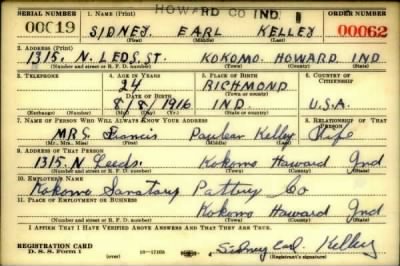 HOWARD CO IND.
SERIAL NUMBER 1. NAME (Print) ORDER NUMBER
00019 SIDNEY. EARL KELLEY 00062
(First) (Middle) (Last)
2. ADDRESS (Print)
1315. N. LEDS. ST. KOKOMO. HOWARD. IND
(Number and street or R. F. D. number) (Town) (County) (State)
3. TELEPHONE 4. AGE IN YEARS 5. PLACE OF BIRTH 6. COUNTRY OF CITIZENSHIP
24 RICHMOND
DATE OF BIRTH (Town or county)
8/8/1916 IND. U.S.A.
(Exchange) (Number) (Mo.) (Day) (Yr.) (State or country)
7. NAME OF PERSON WHO WILL ALWAYS KNOW YOUR ADDRESS 8. RELATIONSHIP OF THAT PERSON
MRS. Francis Paulean Kelley Wife
(Mr., Mrs., Miss) (First) (Middle) (Last)
9. ADDRESS OF THAT PERSON
1315. N Leeds. Kokomo Howard Ind
(Number and street or R. F. D. number) (Town) (County) (State)
10. EMPLOYER'S NAME
Kokomo Sanatary Pottry Co
11. PLACE OF EMPLOYMENT OR BUSINESS
Kokomo Howard Ind
(Number and street or R. F. D. number) (Town) (County) (State)
I AFFIRM THAT I HAVE VERIFIED ABOVE ANSWERS AND THAT THEY ARE TRUE.
REGISTRATION CARD
D. S. S. Form 1 (over) 16-17105 Sidney Earl Kelley
(Registrant's signature)